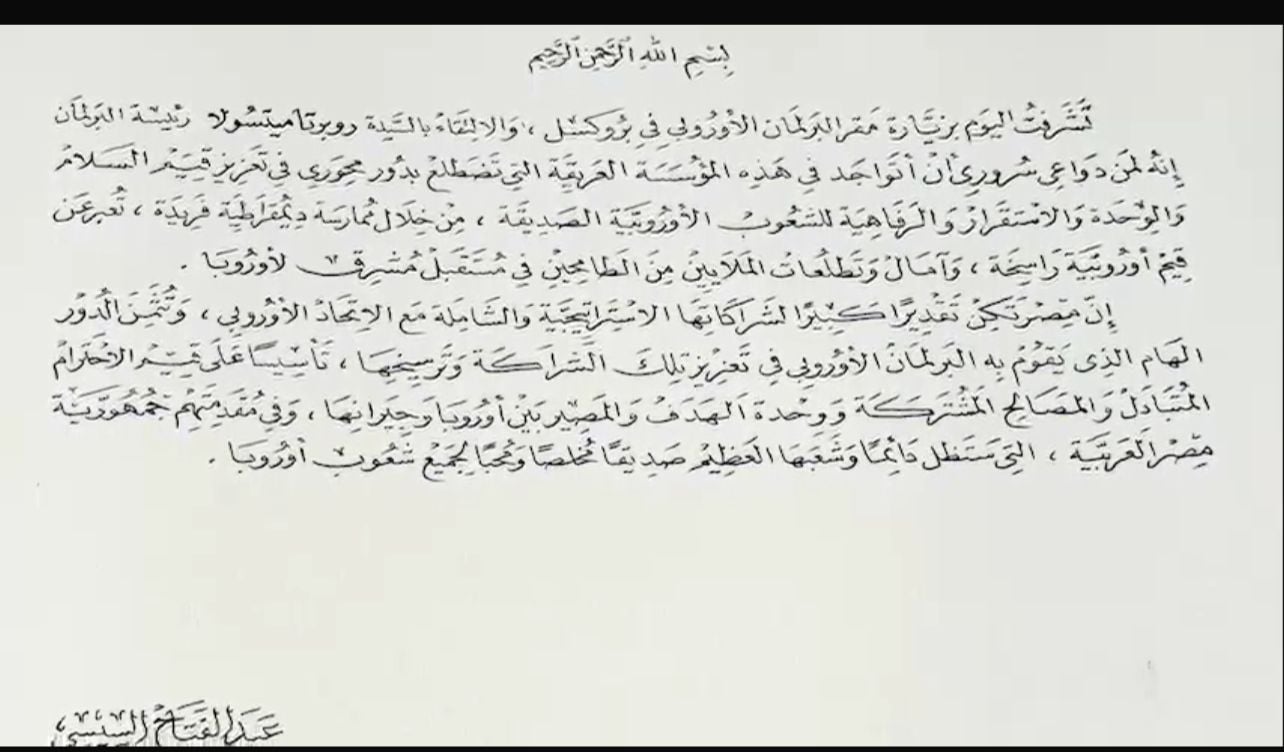 بِسْمِ اللهِ الرَّحْمٰنِ الرَّحِيْمِ
تَشَرفتُ اليَوم بزيَارة مَقر البَرلمَان الأوُرُوبي فِي بُروكسَل ، وَالالتقَاءُ بالسَّيدة روبرتا ميتسولا رئيسَة البَرلمَان
إنهُ لمَن دوَاعي سُروري أنْ أتواجَد في هَذه المؤسَسَة العَريقَة التي تَضطلعُ بدُور محوَري في تَعزيز قيَم السَلامُ
وَالوحْدة وَالاستقرَارُ وَالرفَاهيَة للشعُوبْ الأوُروُبيَة الصَديقَة ، مِنْ خلَال ممُارسَة ديمُقرَاطيَة فَريدَة ، تُعبر عَن
قيَم أوُروبَيَة رَاسخَة ، وَآمَالُ وَتَطلعُاتْ المَلَايينْ مِنَ الطَامحِينْ فِي مُستَقبَلُ مُشرِقْ لأورُوبَا .
إنّ مِصْرَ تَكِنُ تَقدِيرًا كَبيْرًا لشرَاكَاتهَا الاسْترَاتيجيَّة وَالشَاملَة مَع الاتحَادُ الأوُروبي ، وَتُثمِنَ الدُورْ
الهَام الذي يَقوُمُ به البَرلمَانُ الأوُروبي فِي تَعزيز تلكَ الشَراكَة وَترسيخهَا ، تَأسْيسًا عَلَى قيَم الاحترَامُ
المُتبَادَلُ وَالمصَالح المُشْتركَة وَوحْدة الهَدفْ وَالمَصيْر بَينْ أوُروبَا وَجيرانهَا ، وَفي مُقدمَتهُم جمُهُوريَة
مِصْر العَربيَّة ، التِي سَتَظل دَائمًا وَشَعبَهَا العَظيْمْ صَديقًا مُخلصًا وَمحُبًا لجَميعْ شَعُوبْ أورُوبَا .
عَبدالفَتَاح السِّيسِي